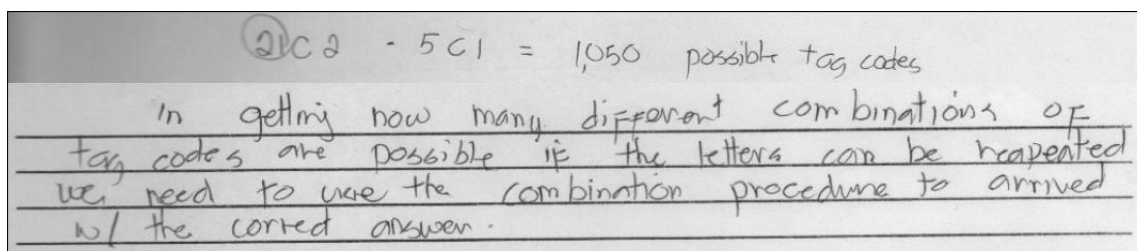 21C2 · 5C1 = 1,050 possible tag codes
in getting how many different combinations of
tag codes are possible if the letters can be reapeated
we need to use the combination procedure to arrived
w/ the correct answer.